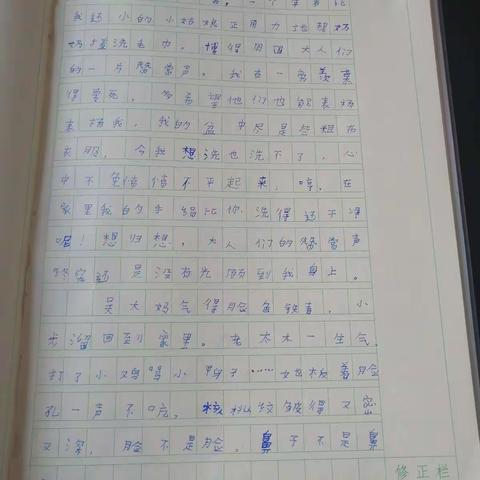 我还小的小姑娘正用力地帮奶
奶搓洗毛巾。博得周围大人们
的一片赞赏声。我在一旁羡慕
得要死，多希望他们也能表扬
表扬我，我的盆中尽是些粗布
衣服，令我想洗也洗不了，心
中不免愤愤不平起来，哼，在
家里我的手绢比你洗得还干净
呢！想归想，大人们的赞赏声
终究还是没有光顾到我身上。
吴大妈气得脸色铁青，小
步溜回到家里。老太太一生气，
打了小鸡骂小鸭子……她板着脸
孔一声不吭，核桃纹皱得又密
又深，脸不是脸，鼻子不是鼻
修正栏